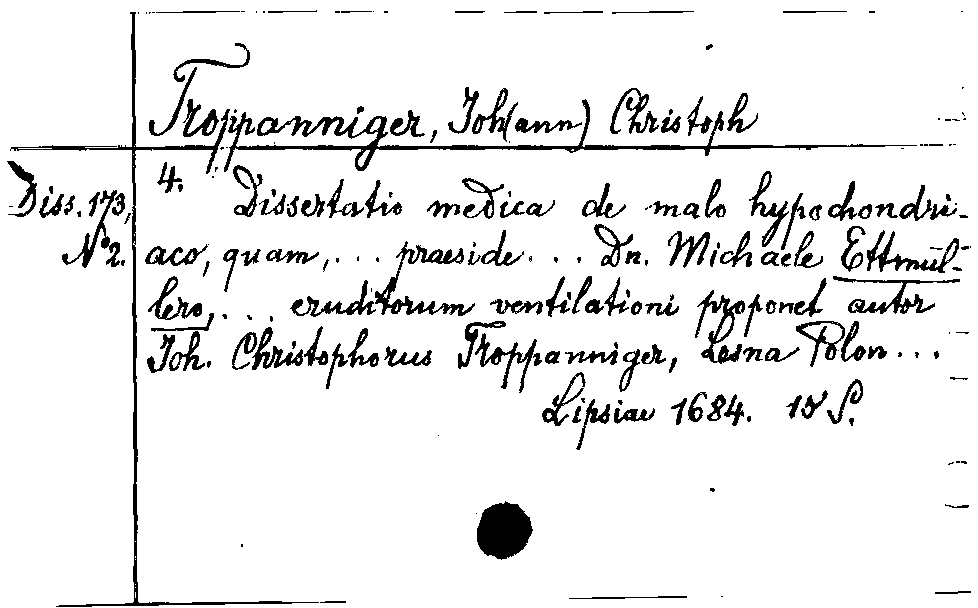 Troppanniger, Joh(ann) Christoph
Diss. 173,
No 2.
4. Dissertatio medica de malo hypochondri-
aco, quam, ... praeside ... Dn. Michaele Ettmül-
lero, ... eruditorum ventilationi proponet autor
Joh. Christophorus Troppanniger, Lesna Polon ...
Lipsiae 1684. 15 S.